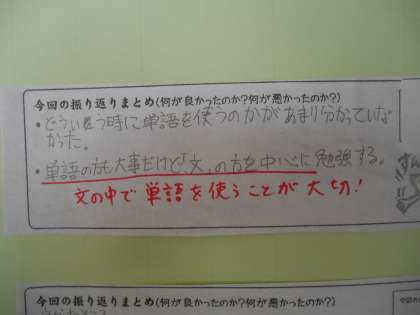 今回の振り返りまとめ(何が良かったのか?何が悪かったのか?)
・どういう時に単語を使うのかがあまり分かっていな
かった。
・単語の方も大事だけど、「文」の方を中心に勉強する。
文の中で単語を使うことが大切!
今回の振り返りまとめ(何が良かったのか?何が悪かったのか?)